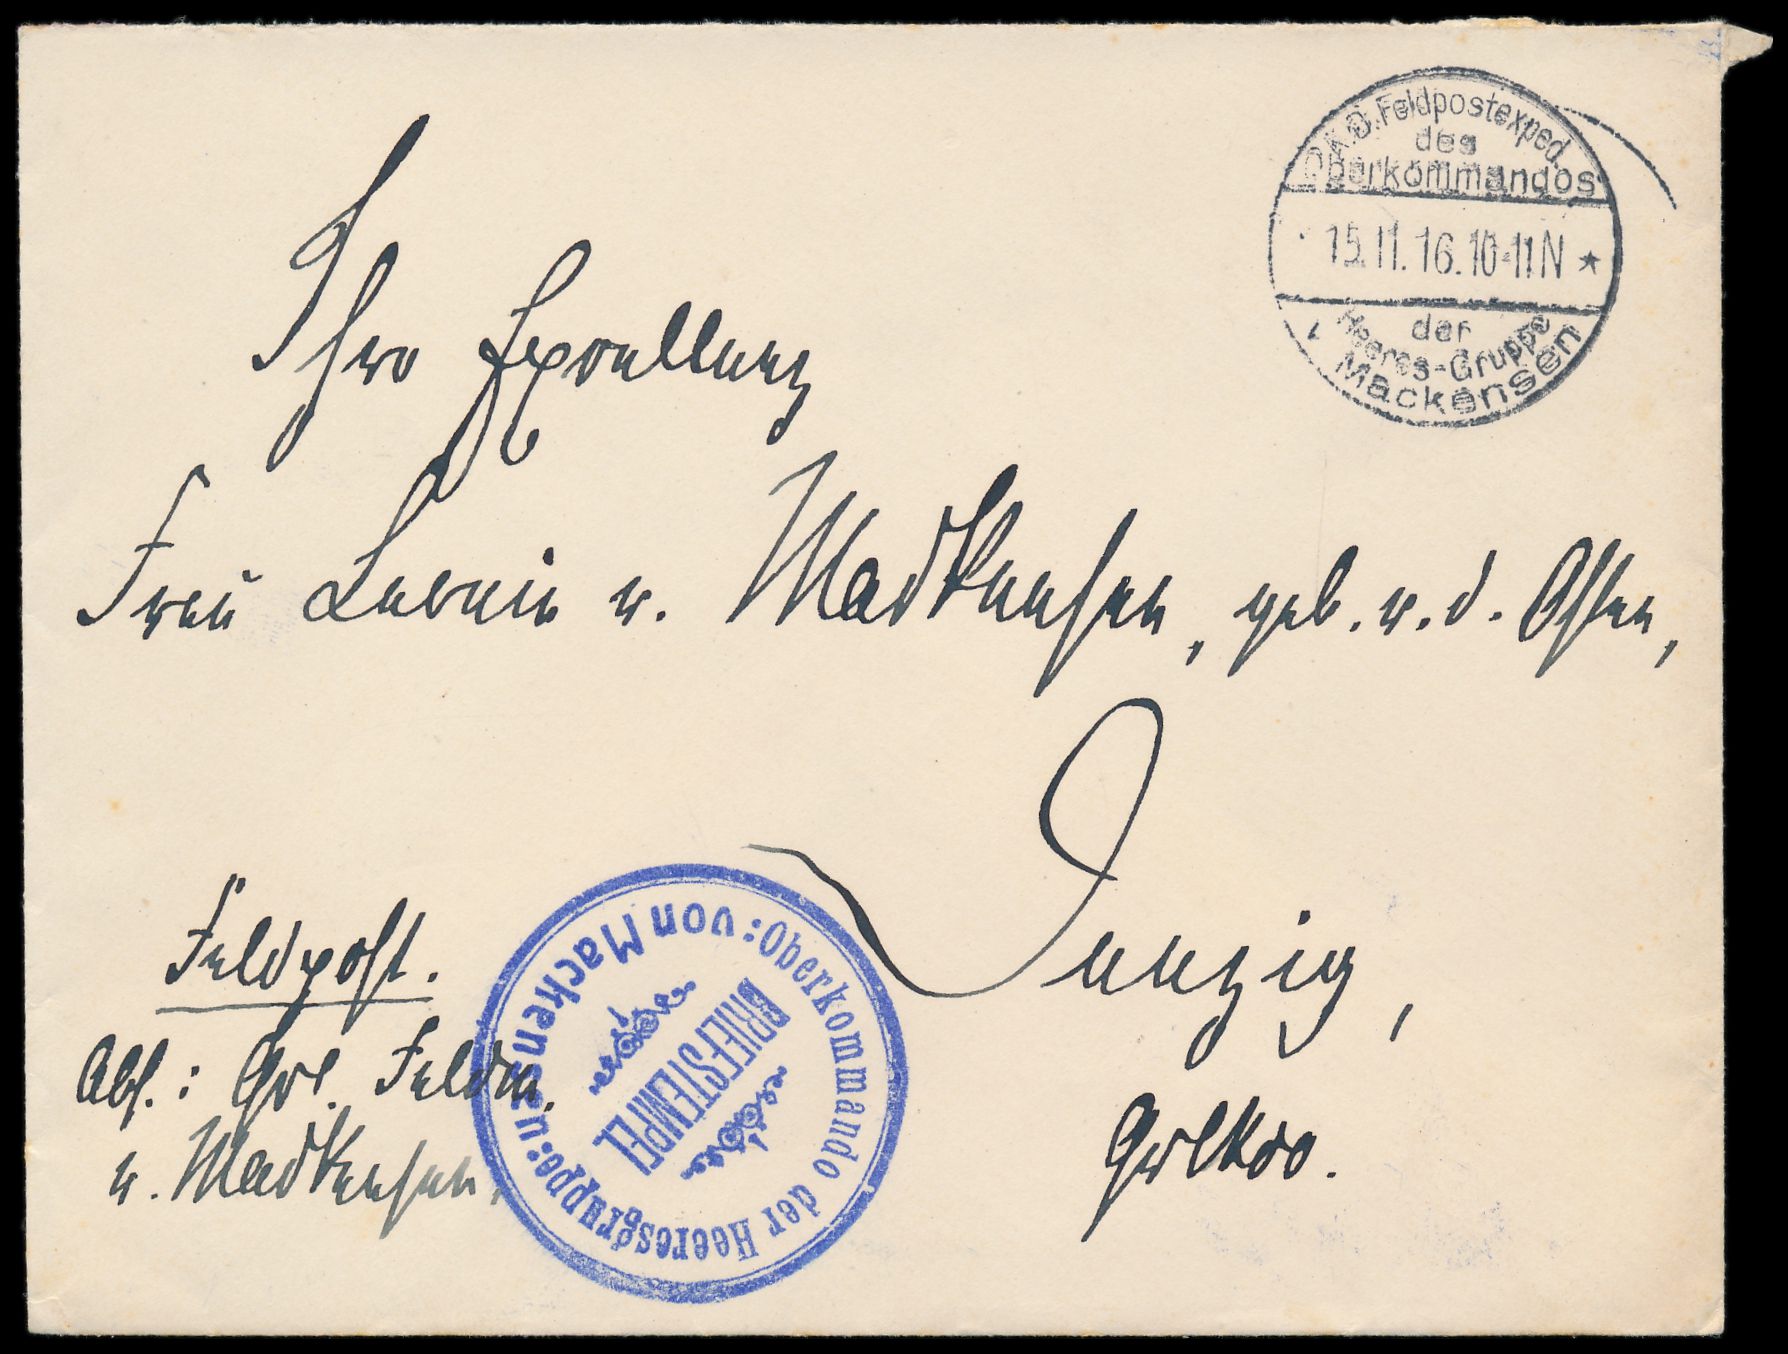 K.D. Feldpostexped.
des
Oberkommandos
15.11.16.10-11N ★
der
Heeres-Gruppe
Mackensen
Ihre Exzellenz
Frau Leonie v. Mackensen, geb. v. d. Osten,
Danzig,
Feldpost.
Abs.: Gen. Feldm.
v. Mackensen.
Oberkommando der Heeresgruppe: von Mackensen:
BRIEFSTEMPEL